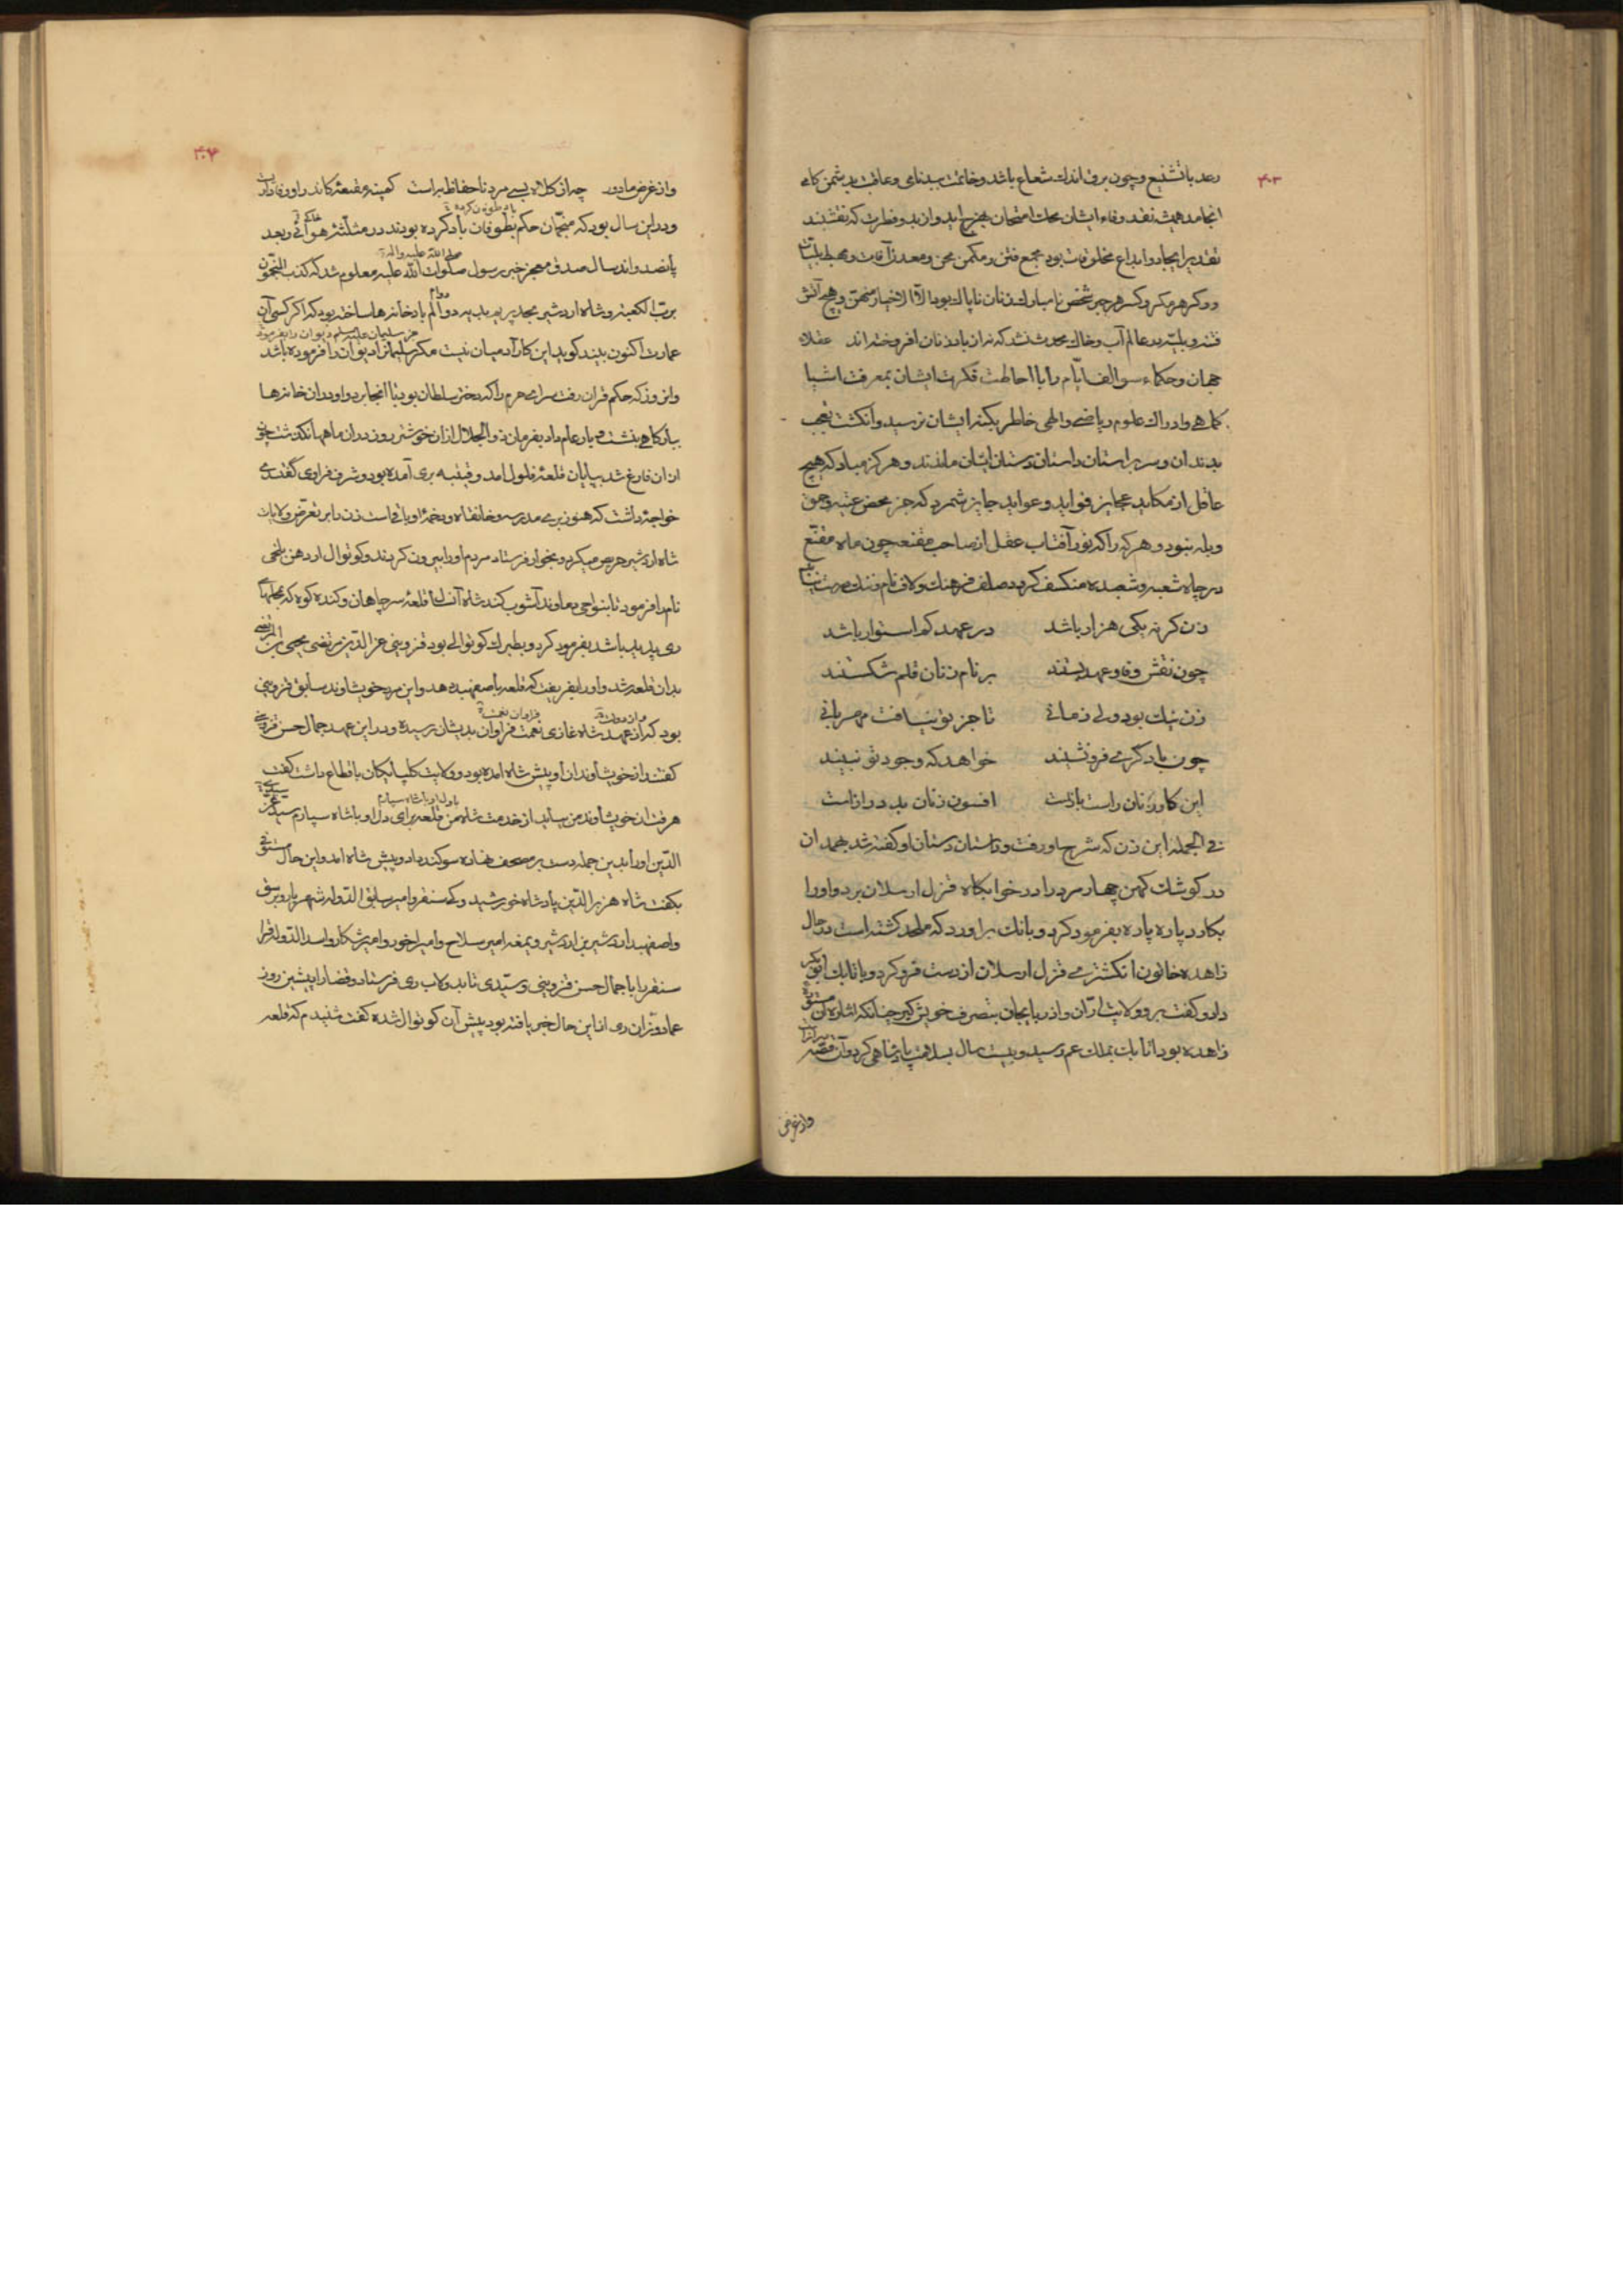 ۴۰۳
رعد با تشنیع و چون برق اندك شعاع باشد و خاتمت ببدنامی و عاقبت بدشمن کامی
انجامد همیشه نقد وفاء ایشان بمحك امتحان بهرج اید و از بدو فطرت که نقشبند
تقدیر ایجاد و ابداع مخلوقات بود مجمع فتن و مکمن محن و معدن آفات و محیط بلیات
و وکر هر مکر و کسر هر جبر شخص نامبارك زنان ناپاك بود الا الاخیار منهن و هیچ آتش
فتنه و بلیه در عالم آب و خاك محدث نشد که نه ان باد زنان افروخته اند عقلاء
جهان و حکماء سوالف ایام را با احاطت فکرت ایشان بمعرفت اشیا
کماهی و ادراك علوم ریاضی و الهی خاطر بکنه ایشان نرسید و انگشت تعجب
بدندان و سر بر استان داستان دستان ایشان ماندند و هرگز مباد که هیچ
عاقل از مکاید عجایز فواید و عواید جایز شمرد که جز محض عته و حمق
و بله نبود و هر که را که نور آفتاب عقل از صاحب مقنعه چون ماه مقنع
در چاه شعبه و شعبده منکسف کردد صلف فرهنك و لاف نام و ننك
زن کر نه یکی هزار باشد در عهد کم استوار باشد
چون نقش وفا و عهد بستند بر نام زنان قلم شکستند
زن نیك بود ولی زمانی تا جز تو نیافت مهربانی
چون با دکری فرو نشیند خواهد که وجود تو نبیند
این کار زنان راست بازست افسون زنان بد درازاست
فی الجمله این زن که شرح او رفت و داستان دستان او کفته شد بهمدان
در کوشك کهن چهار مرد را در خوابکاه قزل ارسلان برد و او را
بکارد پاره پاره بفرمود کرد و بانك بر اورد که ملحد کشته است در حال
زاهده خاتون انکشتری قزل ارسلان از دست فرو کرد و با تابك ابو بکر
داد و کفت برو ولایت اران و اذربایجان بتصرف خویش کیر چنانکه اشاره آن
زاهده بود اتابك بملك عم رسید و بیست سال پادشاهی کرد و آن قصه
و از غرض
۴۰۴
و از غرض ما دور چه از کلاه بسی مرد ناحفاظ براست کمینه مقنعه کاندر او وفاداری
باد طوفان کرده
و در این سال بود که منجمان حکم بطوفان باد کرده بودند در مثلثه هوائی و بعد
صلی الله علیه و اله
پانصد و اند سال صدق معجز خبر رسول صلوات الله علیه معلوم شد که کذب المنجمون
برب الکعبه و شاه اردشیر بدوالم باد خانه ها ساخته بود که اکر کسی آن
جز سلیمان علیه سلم دیوان را بفرمود
عمارت اکنون بیند کوید این کار آدمیان نیست مکر سلیمان دیوان را فرموده باشد
و ان روز که حکم قران رفت سرای حرم را که دختر سلطان بود با انجا برد و او در ان خانه ها
ببارکاهی بنشست و بار عام داد بفرمان ذو الجلال از ان خوشتر روز در ان ماهها نکذشت چون
از ان فارغ شد بپایان قلعه فلول امد و قتبه بری آمده بود و شرف فراوی کفتندی
خواجه داشت که هنوز بری مدرسه و خانقاه و دخمه او باقی است زن را بر تعرض ولایات
شاه اردشیر حریص میکرد و بخوار فرستاد مردم او را بیرون کردند و کوتوال اردهن بلخی
نام را فرمود تا بنواحی دماوند آشوب کند شاه آن قلعه سر چاهان و کنده کوه که بمحلهای
ری پدید باشد بفرمود کرد و بطبرك کوتوالی بود قزوینی عز الدین مرتضی یحیی
بدان قلعه شد و او را بفریفت که قلعه باصفهبد دهد و این مرد خویشاوند سابق قزوینی
فراوان نعمت
بود که از عهد شاه غازی نعمت فراوان بدیشان رسیده و در این عهد جمال حسن قزوینی
کفتند از خویشاوندان او پیش شاه امده بود و ولایت کلپایکان باقطاع داشت کفت
هر وقت ان خویشاوند من بیاید از خدمت شاه من قلعه برای دل او با شاه سپارم سید عز
الدین او را بدین جمله دست بر مصحف نهاده سوکند داد و پیش شاه امد و این حال
بکفت شاه هزبر الدین پادشاه خورشید و کی سنقر و امیر سابق الدوله شهریار و برسق
و اصفهبد اردشیر بن اردشیر و یمغه امیر سلاح و امیر اخور و امیر شکار و اسد الدوله قرا
سنقر را با جمال حسن قزوینی و سیدی تا بدولاب ری فرستاد و قضا را پیشین روز
عماد وزان ری از این حال خبر یافته بود پیش آن کوتوال شده کفت شنیدم که قلعه